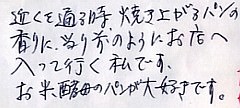 近くを通る時 焼き上がるパンの
香りに、当り前のようにお店へ
入って行く私です。
お米酵母のパンが大好きです。